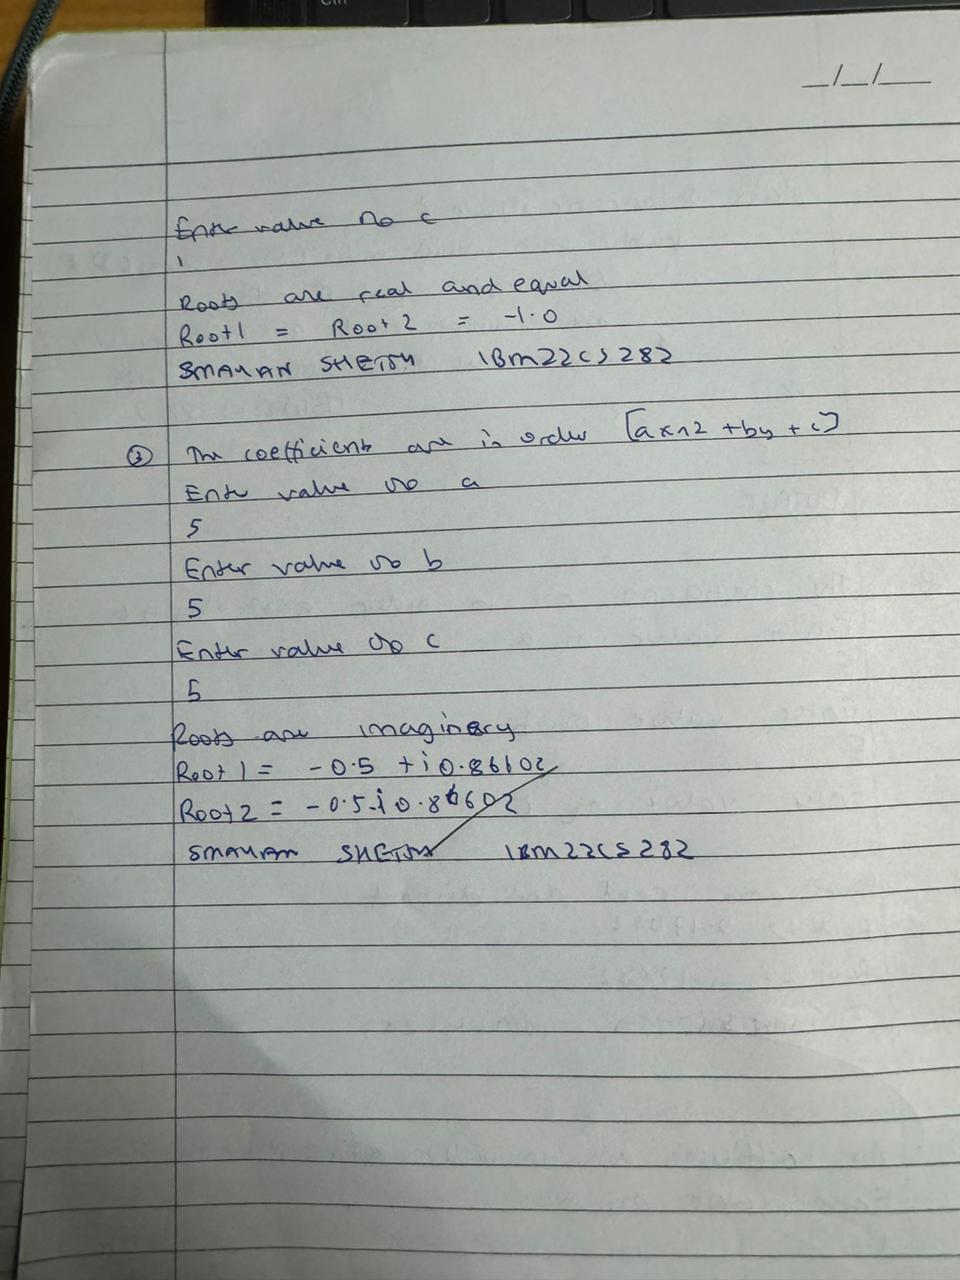 _/_/__
Enter value no c
1
Roots are real and equal
Root1 = Root 2 = -1.0
SMAYAN SHETTY 1BM22CS282
③ The coefficients are in order [ax^2 + by + c]
Enter value no a
5
Enter value no b
5
Enter value no c
5
Roots are imaginery
Root 1 = -0.5 + i 0.86602
Root 2 = -0.5 - i 0.86602
SMAYAN SHETTY 1BM22CS282